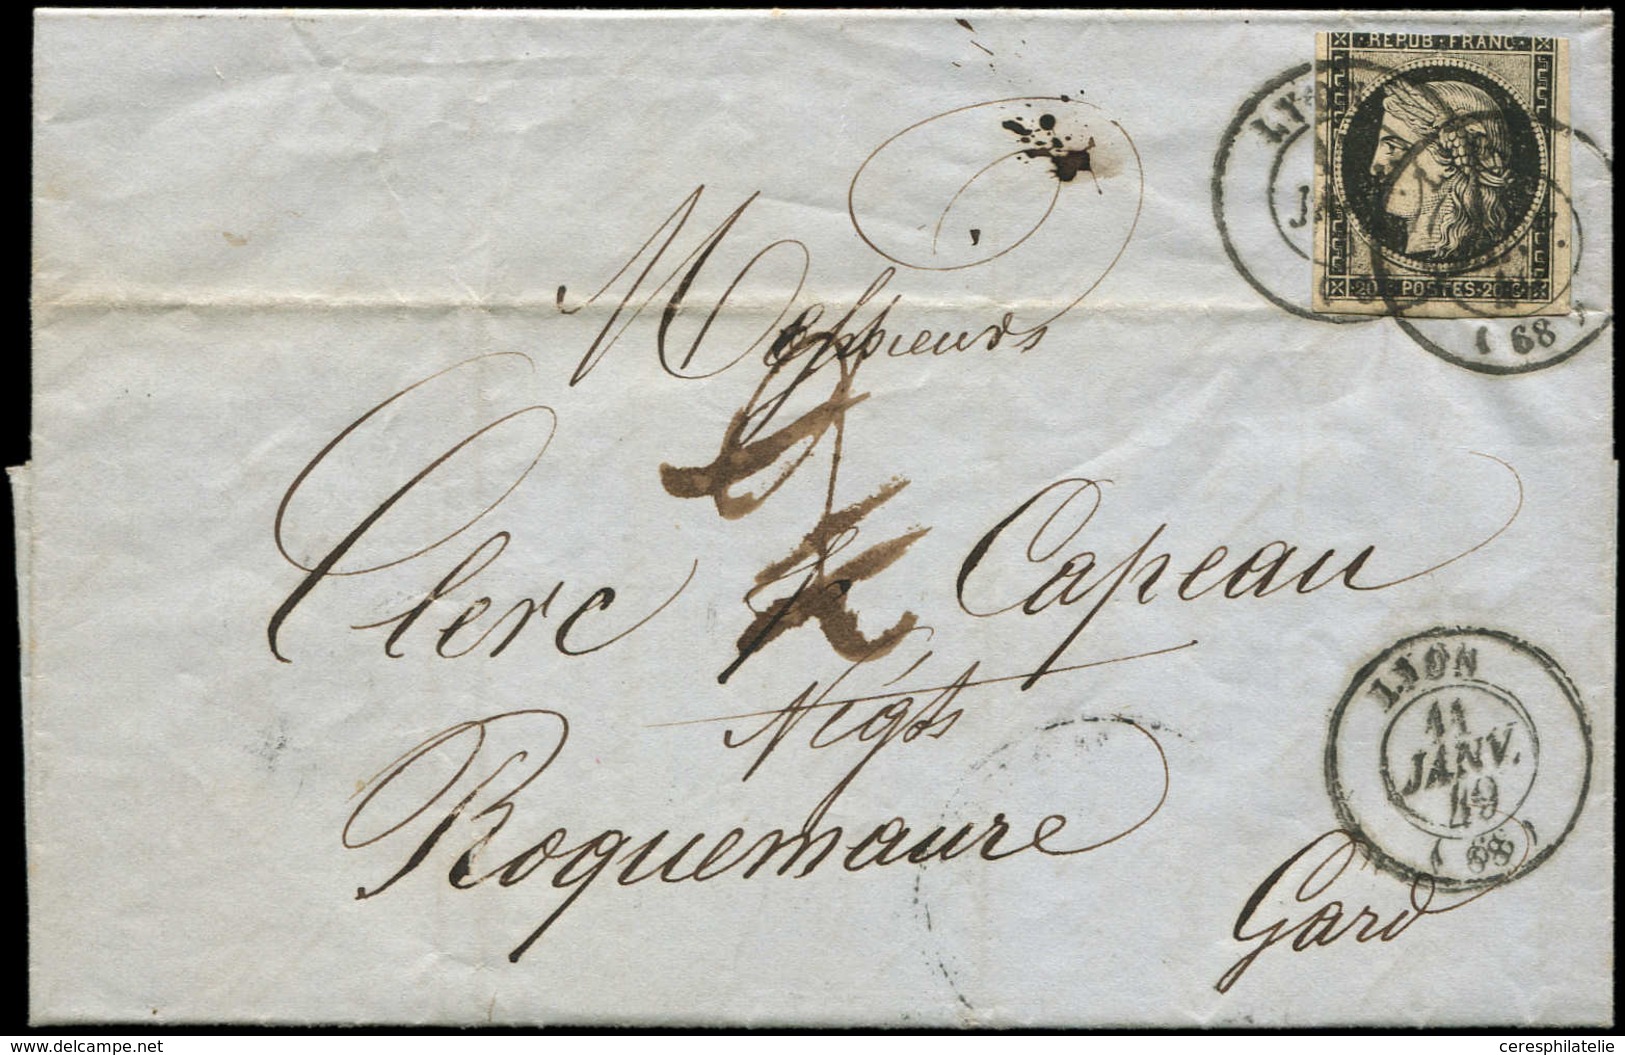 REPUB·FRANC·
LYON
20 C POSTES·20·C
( 68 )
Messieurs
Clerc & Capeau
Négts
Roquemaure
Gard
LYON
11
JANV.
49
( 68 )
www.delcampe.net
ceresphilatelie